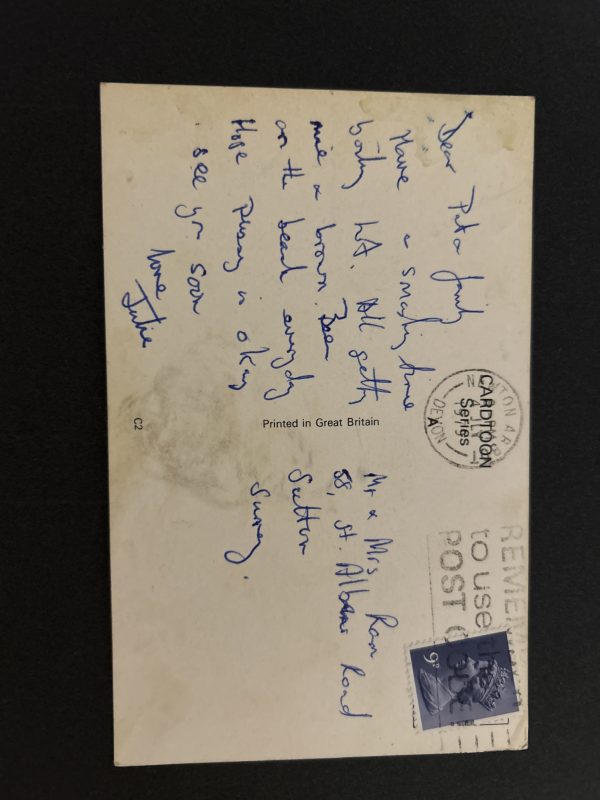 Dear Pat & family
Have a smashing time
All getting
nice & brown. Been
on the beach everyday
Hope Pussy is okay
see you soon
love
Julie
C2
Printed in Great Britain
CARDTOON
Series
DEVON
A
1979
REMEMBER
to use the
POST CODE
9P
Mr & Mrs
58, St. Albans Road
Sutton
Surrey.